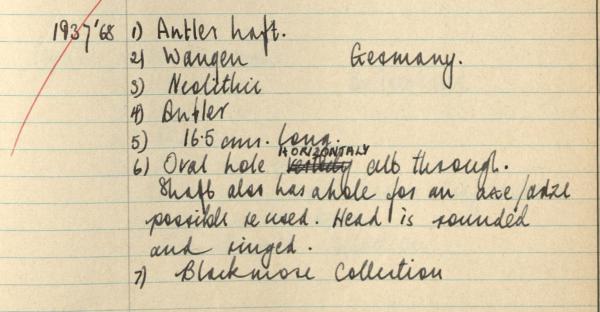 1937'68 1) Antler haft.
2) Wangen Germany.
3) Neolithic
4) Antler
5) 16.5 cms. long.
HORIZONTALY
6) Oval hole vertically all through.
Shaft also has a hole for an axe/adze
possible re used. Head is rounded
and ringed.
7) Blackmore Collection